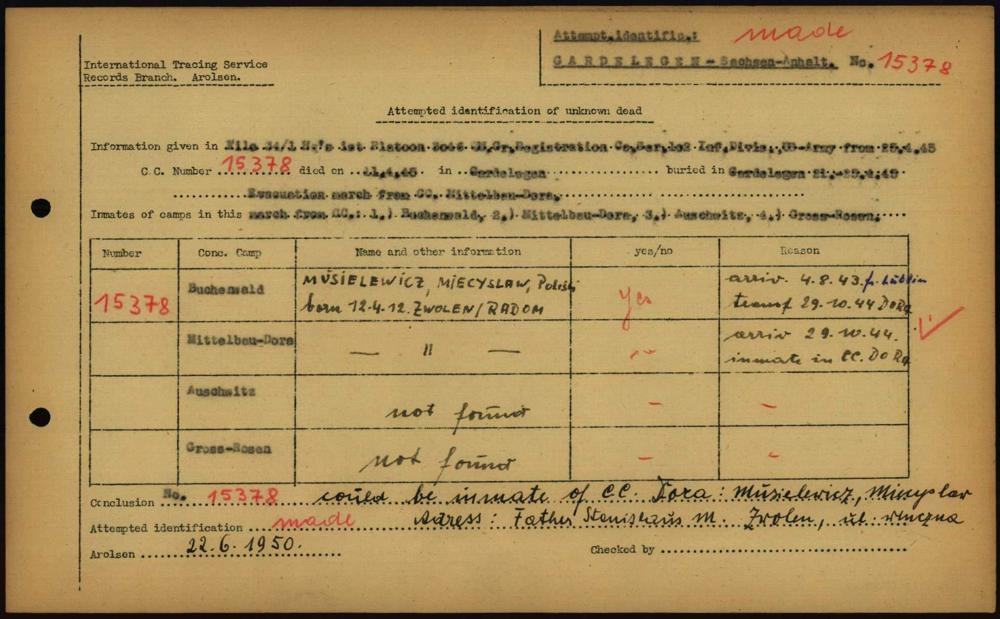 Attempt.identific.: made
International Tracing Service
Records Branch. Arolsen.
GARDELEGEN - Sachsen-Anhalt. No. 15378
Attempted identification of unknown dead
Information given in File 34/1 H.'s 1st Platoon 3046 Gr.Registration Co, 102 Inf.Divis., US-Army from 25.4.45
C.C. Number 15378 died on 11.4.45 in Gardelegen buried in Gardelegen 21.-25.4.45
Evacuation march from CC. Mittelbau-Dora.
Inmates of camps in this march from CC.: 1.) Buchenwald, 2.) Mittelbau-Dora, 3.) Auschwitz, 4.) Gross-Rosen.
Number Conc. Camp Name and other information yes/no Reason
15378 Buchenwald MUSIELEWICZ, MIECYSLAW, yes arriv. 4.8.43. f. Lublin
born 12.4.12. ZWOLEN/RADOM transf 29.10.44 DoRa
Mittelbau-Dora — " — arriv 29.10.44.
inmate in CC. DoRa
Auschwitz not found — —
Gross-Rosen not found — —
Conclusion No. 15378 could be inmate of CC. Dora: Musielewicz, Miecyslav
Attempted identification made Adress: Father Stanislaus M. Zwolen, ul.
Arolsen 22.6.1950. Checked by